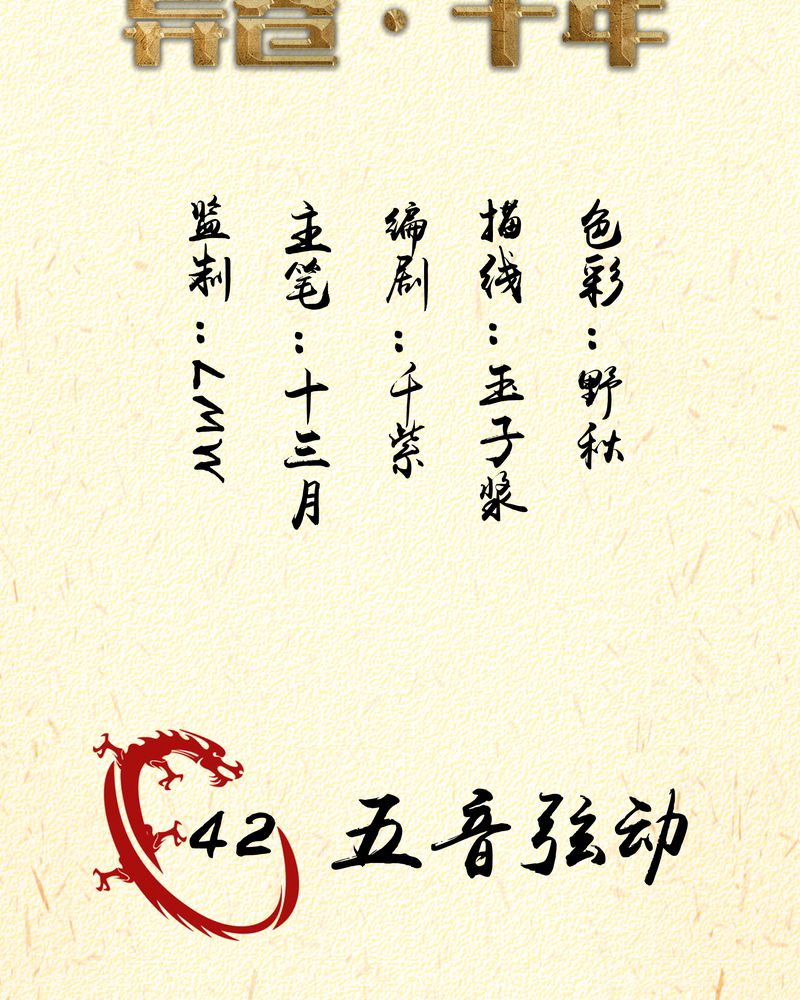 ·千年
色彩：野秋
描线：玉子浆
编剧：千紫
主笔：十三月
监制：MW7
42
五音弦动